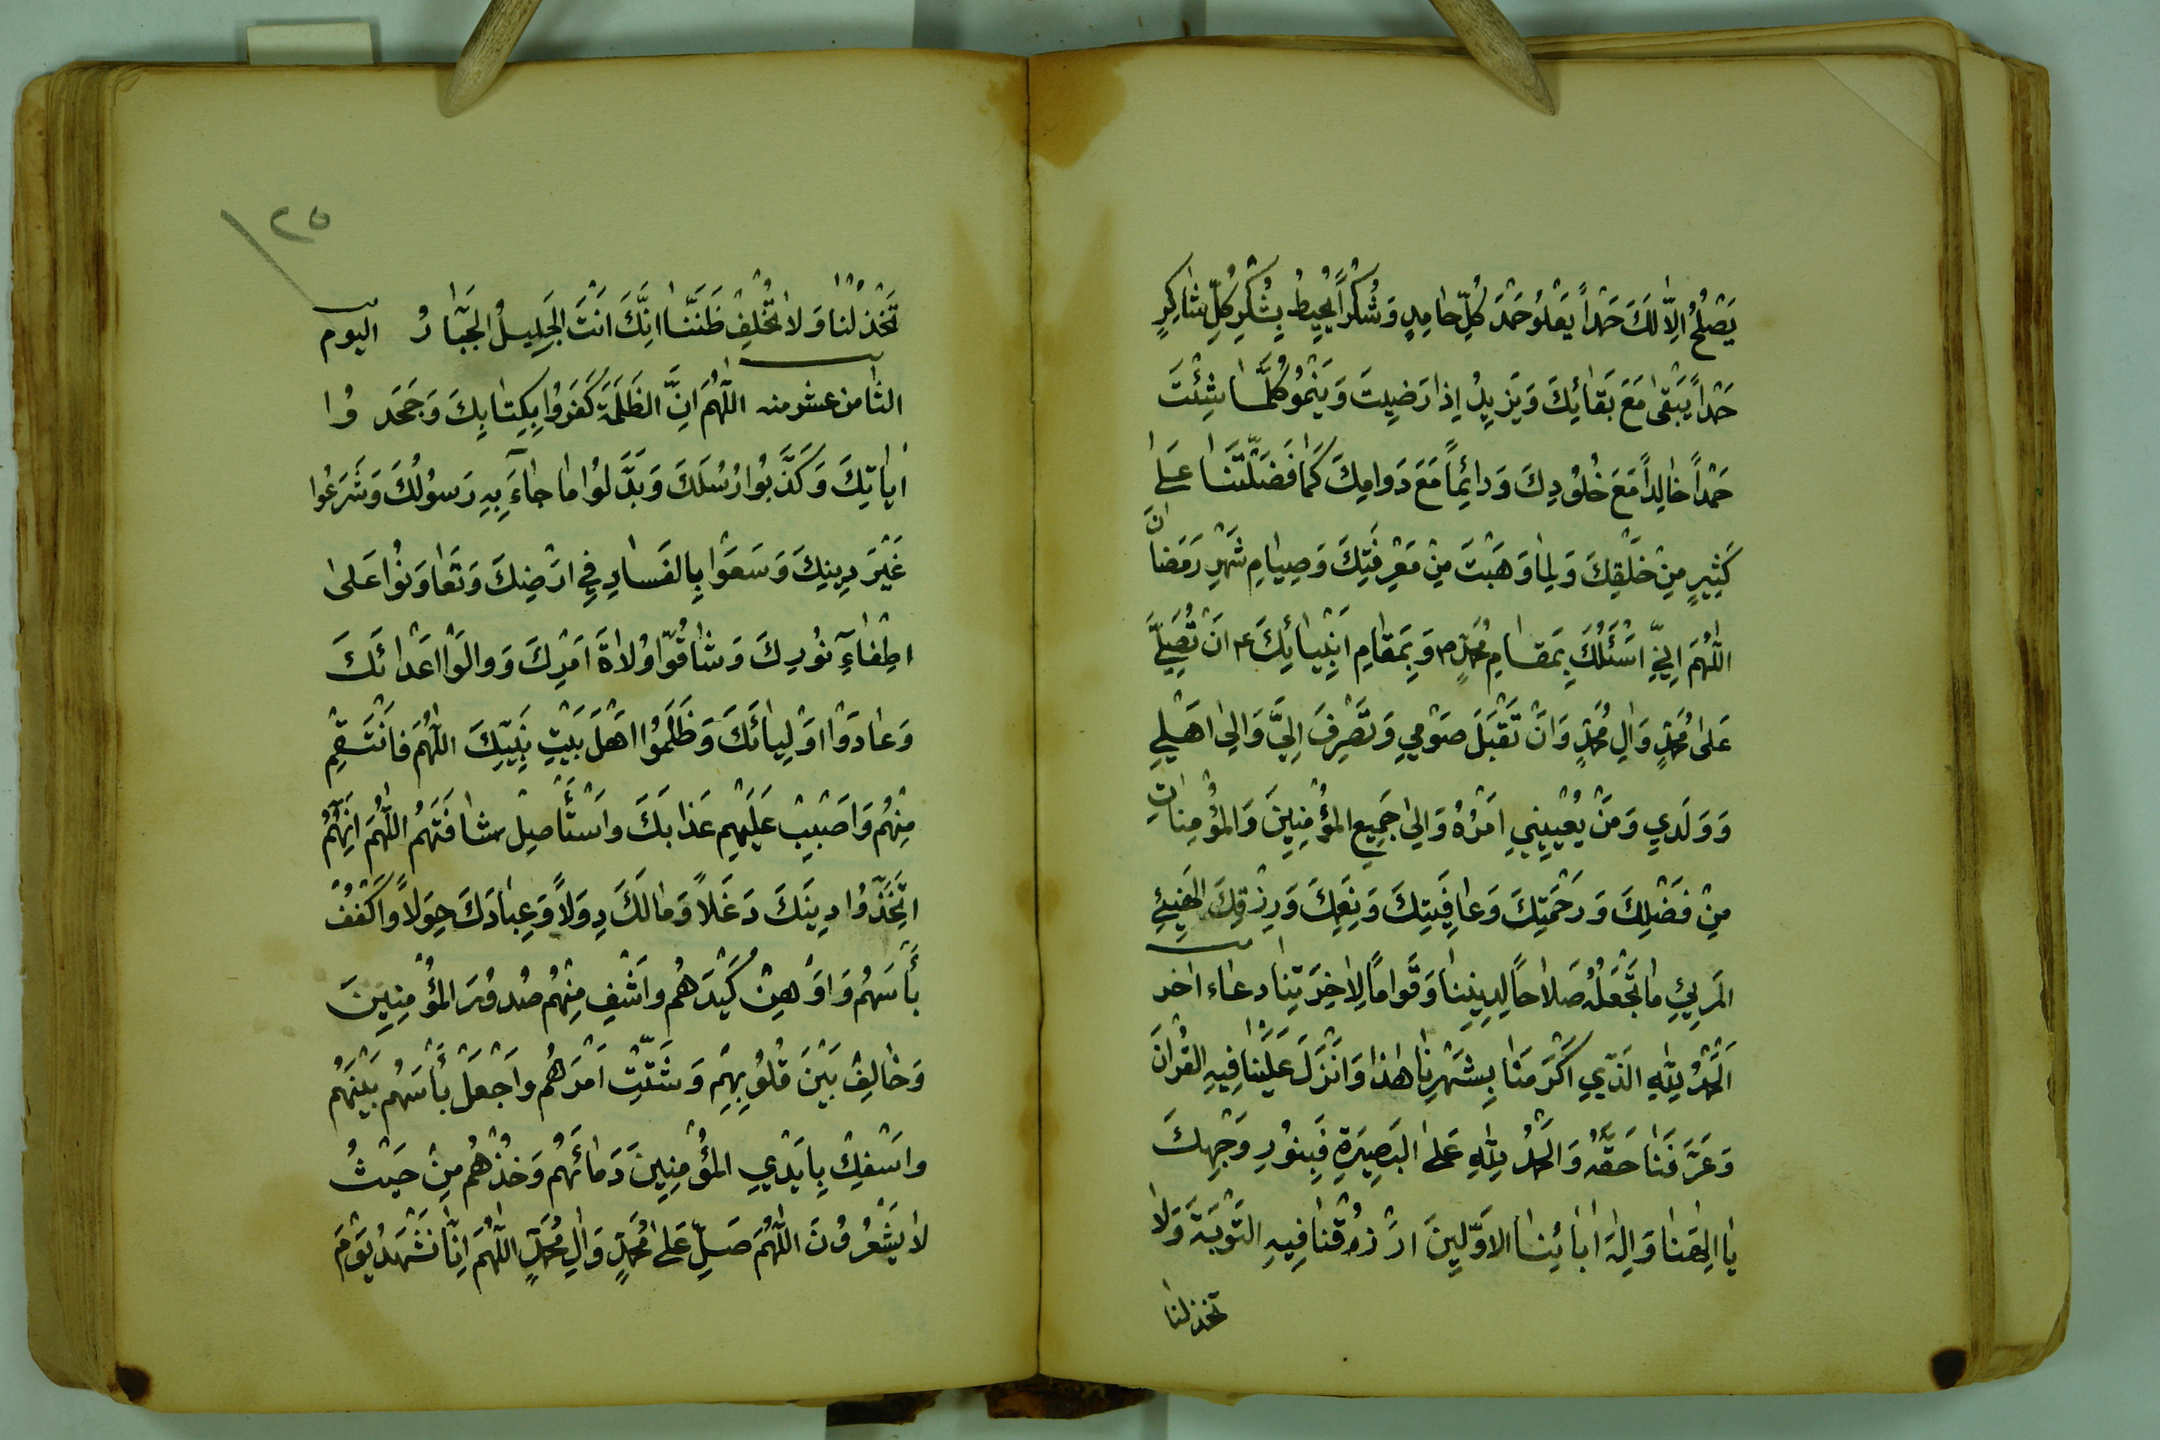 يَصْلُحُ اِلّا لَكَ حَمْداً يَعْلُو حَمْدَ كُلِّ حامِدٍ وَشُكْراً يُحيطُ بِشُكْرِ كُلِّ شاكِرٍ
حَمْداً يَبْقىٰ مَعَ بَقائِكَ وَيَزيدُ إِذا رَضيتَ وَيَنْمُو كُلَّما شِئْتَ
حَمْداً خالِداً مَعَ خُلُودِكَ وَدائِماً مَعَ دَوامِكَ كَما فَضَّلْتَنا عَلىٰ
كَثِيرٍ مِنْ خَلْقِكَ وَلِما وَهَبْتَ مِنْ مَعْرِفَتِكَ وَصِيامِ شَهْرِ رَمَضانَ
اللّٰهُمَ اِنّي اَسْئَلُكَ بِمَقامِ مُحَمَّدٍ ص وَبِمَقامِ اَنْبِيائِكَ ع اَنْ تُصَلِّيَ
عَلىٰ مُحَمَّدٍ وَالِ مُحَمَّدٍ وَاَنْ تَقْبَلَ صَوْمي وَتَصْرِفَ اِلَيَّ وَاِلىٰ اَهْلي
وَوَلَدي وَمَنْ يُعْنيني اَمْرُهُ وَاِلىٰ جَميعِ المُؤْمِنينَ وَالمُؤْمِناتِ
مِنْ فَضْلِكَ وَرَحْمَتِكَ وَعافِيَتِكَ وَنِعَمِكَ وَرِزْقِكَ الهَنيئِ
المَريئِ ما تَجْعَلُهُ صَلاحاً لِدينِنا وَقَواماً لِاٰخِرَتِنا دعاء اخر
اَلْحَمْدُ لِلّٰهِ الَّذي اَكْرَمَنا بِشَهْرِنا هٰذا وَاَنْزَلَ عَلَيْنا فيهِ القُرْاٰنَ
وَعَرَّفَنا حَقَّهُ وَالحَمْدُ لِلّٰهِ عَلىٰ البَصيرَةِ فَبِنُورِ وَجْهِكَ
يا اِلٰهَنا وَاِلٰهَ اٰبائِنا الاَوَّلينَ ارْزُقْنا فيهِ التَّوْبَةَ وَلا
تخذلنا
٢٥
تَخْذُلْنا وَلا تُخْلِفْ ظَنَّنا اِنَّكَ اَنْتَ الجَليلُ الجَبّارُ اليوم
الثامن عشر منه اللّٰهُمَ اِنَّ الظَلَمَةَ كَفَرُوا بِكِتابِكَ وَجَحَدُوا
اٰياتِكَ وَكَذَّبُوا رُسُلَكَ وَبَدَّلُوا ما جاٰءَ بِهِ رَسُولُكَ وَشَرَعُوا
غَيْرَ دِينِكَ وَسَعَوْا بِالفَسادِ في اَرْضِكَ وَتَعاوَنُوا عَلىٰ
اِطْفاٰءِ نُورِكَ وَشاقُّوا وُلاةَ اَمْرِكَ وَوالَوْا اَعْدائَكَ
وَعادَوْا اَوْلِيائَكَ وَظَلَمُوا اَهْلَ بَيْتِ نَبِيِّكَ اللّٰهُمَ فَانْتَقِمْ
مِنْهُم وَاصْبُبْ عَلَيْهِم عَذابَكَ وَاسْتَأْصِلْ شافَتَهُم اللّٰهُمَ اِنَّهُمُ
اتَّخَذُوا دينَكَ دَغَلاً وَمالَكَ دِوَلاً وَعِبادَكَ حِوَلاً وَاكْفُفْ
بَأْسَهُم وَاَوْهِنْ كَيْدَهُم وَاشْفِ مِنْهُم صُدُورَ المُؤْمِنينَ
وَخالِفْ بَيْنَ قُلُوبِهِم وَشَتِّتْ اَمْرَهُم وَاجْعَلْ بَأْسَهُم بَيْنَهُم
وَاسْفِكْ بِاَيْدِي المُؤْمِنينَ دِمائَهُم وَخُذْهُم مِنْ حَيْثُ
لا يَشْعُرُونَ اللّٰهُمَ صَلِّ عَلىٰ مُحَمَّدٍ وَالِ مُحَمَّدٍ اللّٰهُمَ اِنّا نَشْهَدُ يَوْمَ